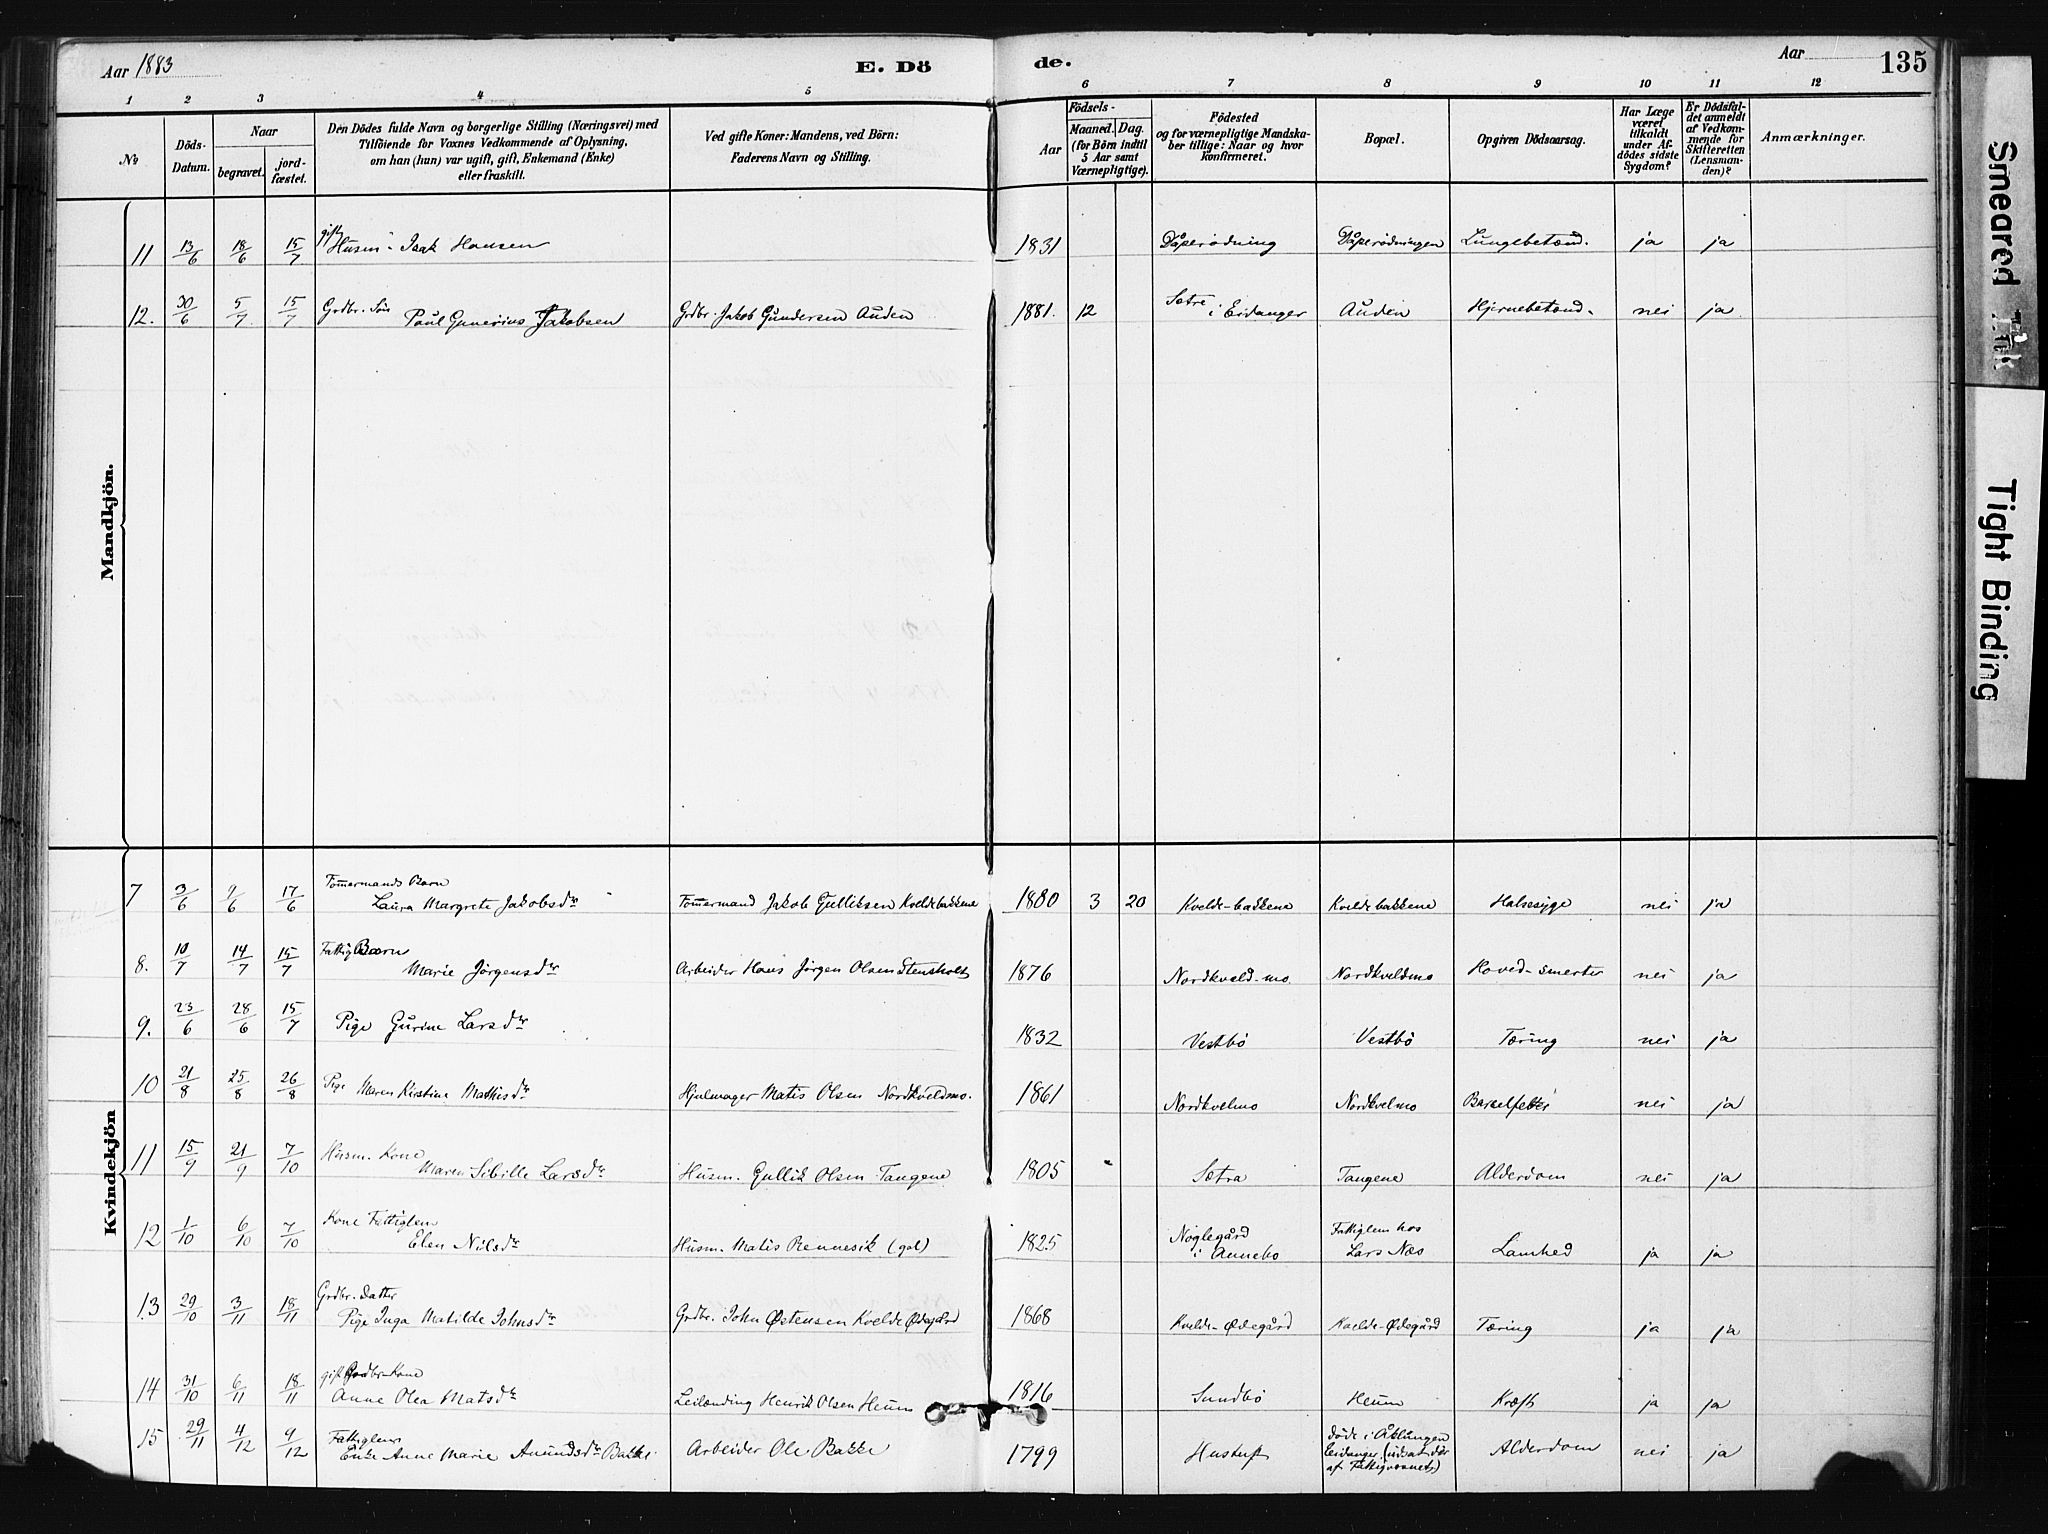 Aar 1883
E. Dö
de.
Aar
135
1 2 3 4 5 6 7 8 9 10 11 12
No
Döds-Datum.
Naar
begravet.
jord-fæstet.
Den Dödes fulde Navn og borgerlige Stilling (Næringsvei) med
Tilföiende for Voxnes Vedkommende af Oplysning,
om han (hun) var ugift, gift, Enkemand (Enke)
eller fraskilt.
Ved gifte Koner: Mandens, ved Börn:
Faderens Navn og Stilling.
Födsels-
Aar
Maaned. Dag.
(for Börn indtil
5 Aar samt
Værnepligtige).
Födested
og for værnepligtige Mandska-
ber tillige: Naar og hvor
konfirmeret.
Bopæl.
Opgiven Dödsaarsag.
Har Læge
været
tilkaldt
under Af-
dödes sidste
Sygdom?
Er Dödsfal-
det anmeldt
af Vedkom-
mende for
Skifteretten
(Lensman-
den)?
Anmærkninger.
Mandkjön.
11 13/6 18/6 15/7 gift Husm. Isak Hansen 1831 Dåperödning Dåperödningen Lungebetænd. ja ja
12. 30/6 5/7 15/7 Grdbr. Sön Paul Gunerius Jakobsen Grdbr. Jakob Gundersen Auden 1881. 12 Sætre i Eidanger Auden Hjernebetænd. nei ja
Kvindekjön
7 3/6 9/6 17/6 Tömermands Barn
Laura Margrete Jakobsdr Tömermand Jakob Gulliksen Kveldebakkene 1880 3 20 Kvelde-bakkene Kveldebakkene Halsesyge nei ja
8. 10/7 14/7 15/7 Fattig Barn
Marie Jörgensdr Arbeider Hans Jörgen Olsen Stensholt 1876 Nordkveld-mo. Nordkveldmo Hoved-smerter nei ja
9. 23/6 28/6 15/7 Pige Gurine Larsdr 1832 Vestbö Vestbö Tæring nei ja
10 21/8 25/8 26/8 Pige Maren Kirstine Mathisdr Hjulmager Matis Olsen Nordkveldmo. 1861 Nordkvelmo Nordkvelmo Barselfeber nei ja
11 15/9 21/9 7/10 Husm. Kone
Maren Sibille Larsdr Husm. Gullik Olsen Tangene 1805 Sætra Tangene Alderdom nei ja
12 1/10 6/10 7/10 Kone Fattiglem
Elen Nilsdr Husm. Matis Rennesik (gal) 1825 Nöglegård i Annebo Fattiglem hos Lars Næs Lamhed ja ja
13 29/10 3/11 18/11 Grdbr. Datter
Pige Inga Matilde Johnsdr Grdbr. John Østensen Kvelde Ødegård 1868 Kvelde-Ødegård Kvelde-Ødegård Tæring ja ja
14 31/10 6/11 18/11 gift Grdbr-Kone
Anne Olea Matsdr Leilænding Henrik Olsen Heum 1816 Sundbö Heum Kræft ja ja
15 29/11 4/12 9/12 Fattiglem
Enke Anne Marie Amundsdr Bakke. Arbeider Ole Bakke 1799 Hustuft döde i Åklungen Eidanger (udsat der af Fattigvæsnet) Alderdom nei ja
Smeared Ink
Tight Binding